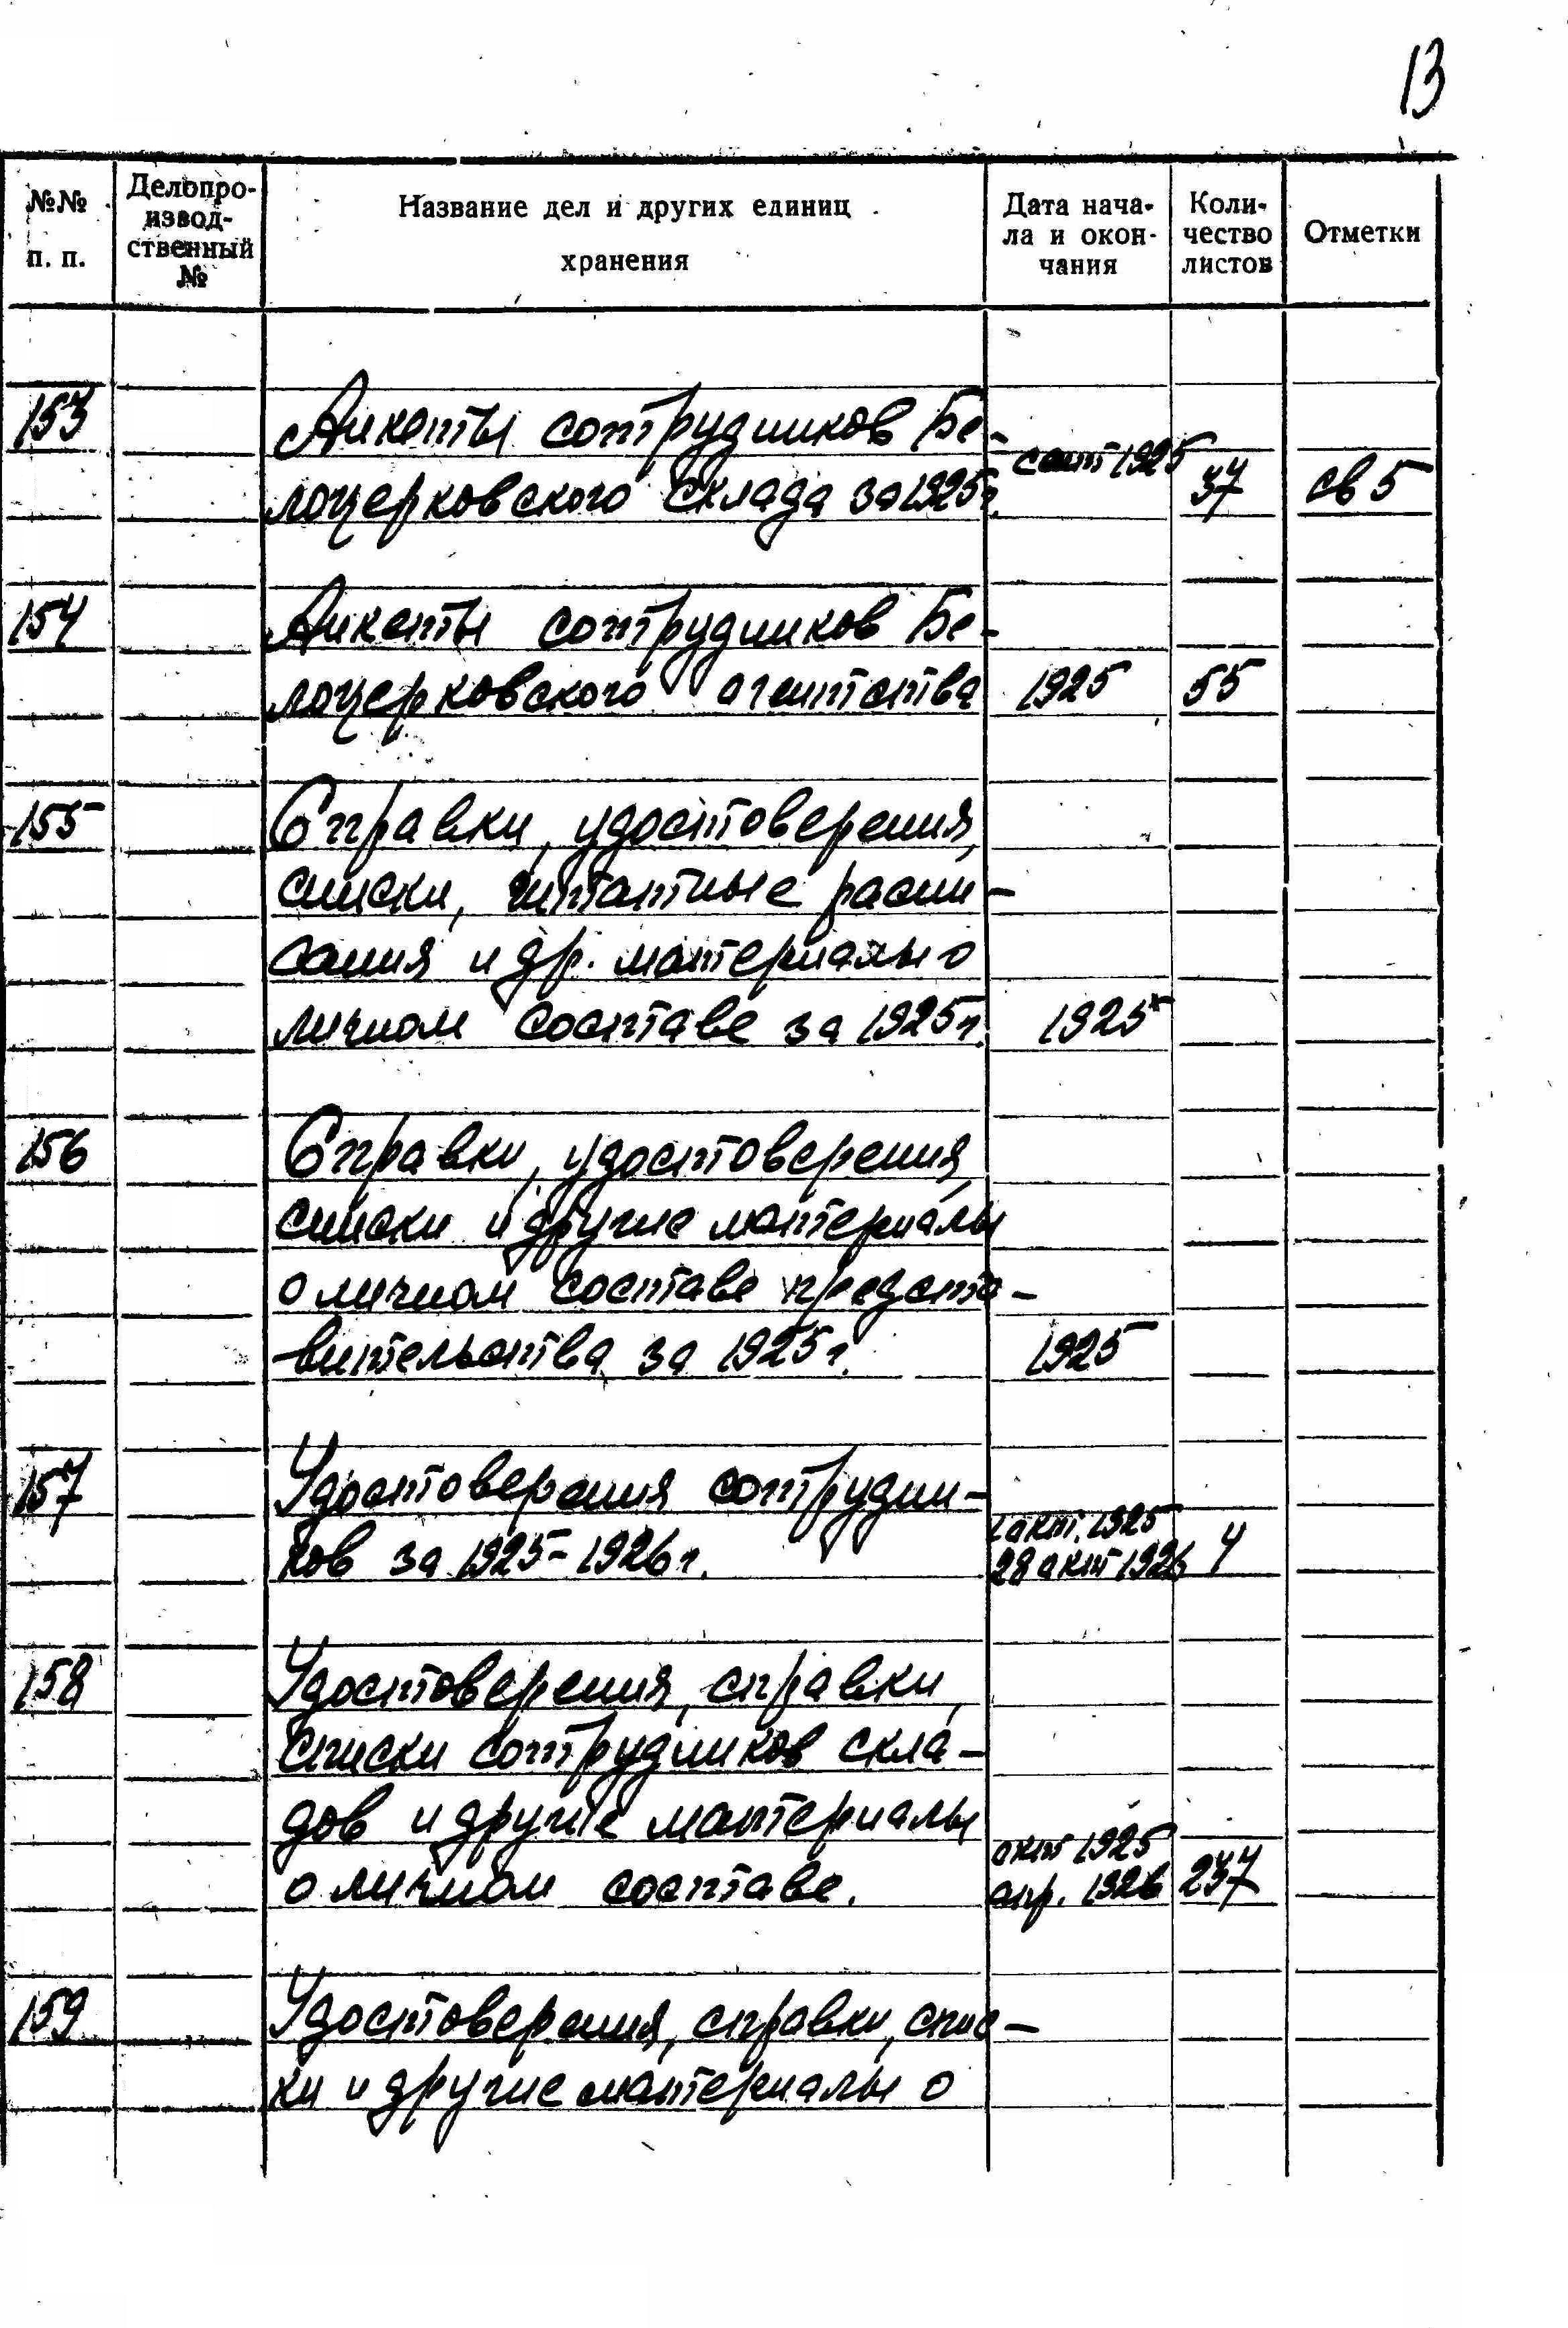 13
№№ п. п.
Делопро-
извод-
ственный
№
Название дел и других единиц
хранения
Дата нача-
ла и окон-
чания
Коли-
чество
листов
Отметки
153 Анкеты сотрудников Бе-
лоцерковского склада за 1925 г. сент 1925 37 св 5
154 Анкеты сотрудников Бе-
лоцерковского агентства 1925 55
155 Справки, удостоверения,
списки, штатные распи-
сания и др. материалы о
личном составе за 1925 г. 1925
156 Справки, удостоверения,
списки и другие материалы
о личном составе предста-
вительства за 1925 г. 1925
157 Удостоверения сотрудни-
ков за 1925-1926 г. 1 окт. 1925
28 окт 1926 4
158 Удостоверения, справки,
списки сотрудников скла-
дов и другие материалы
о личном составе. окт 1925
апр. 1926 237
159 Удостоверения, справки, спис-
ки и другие материалы о